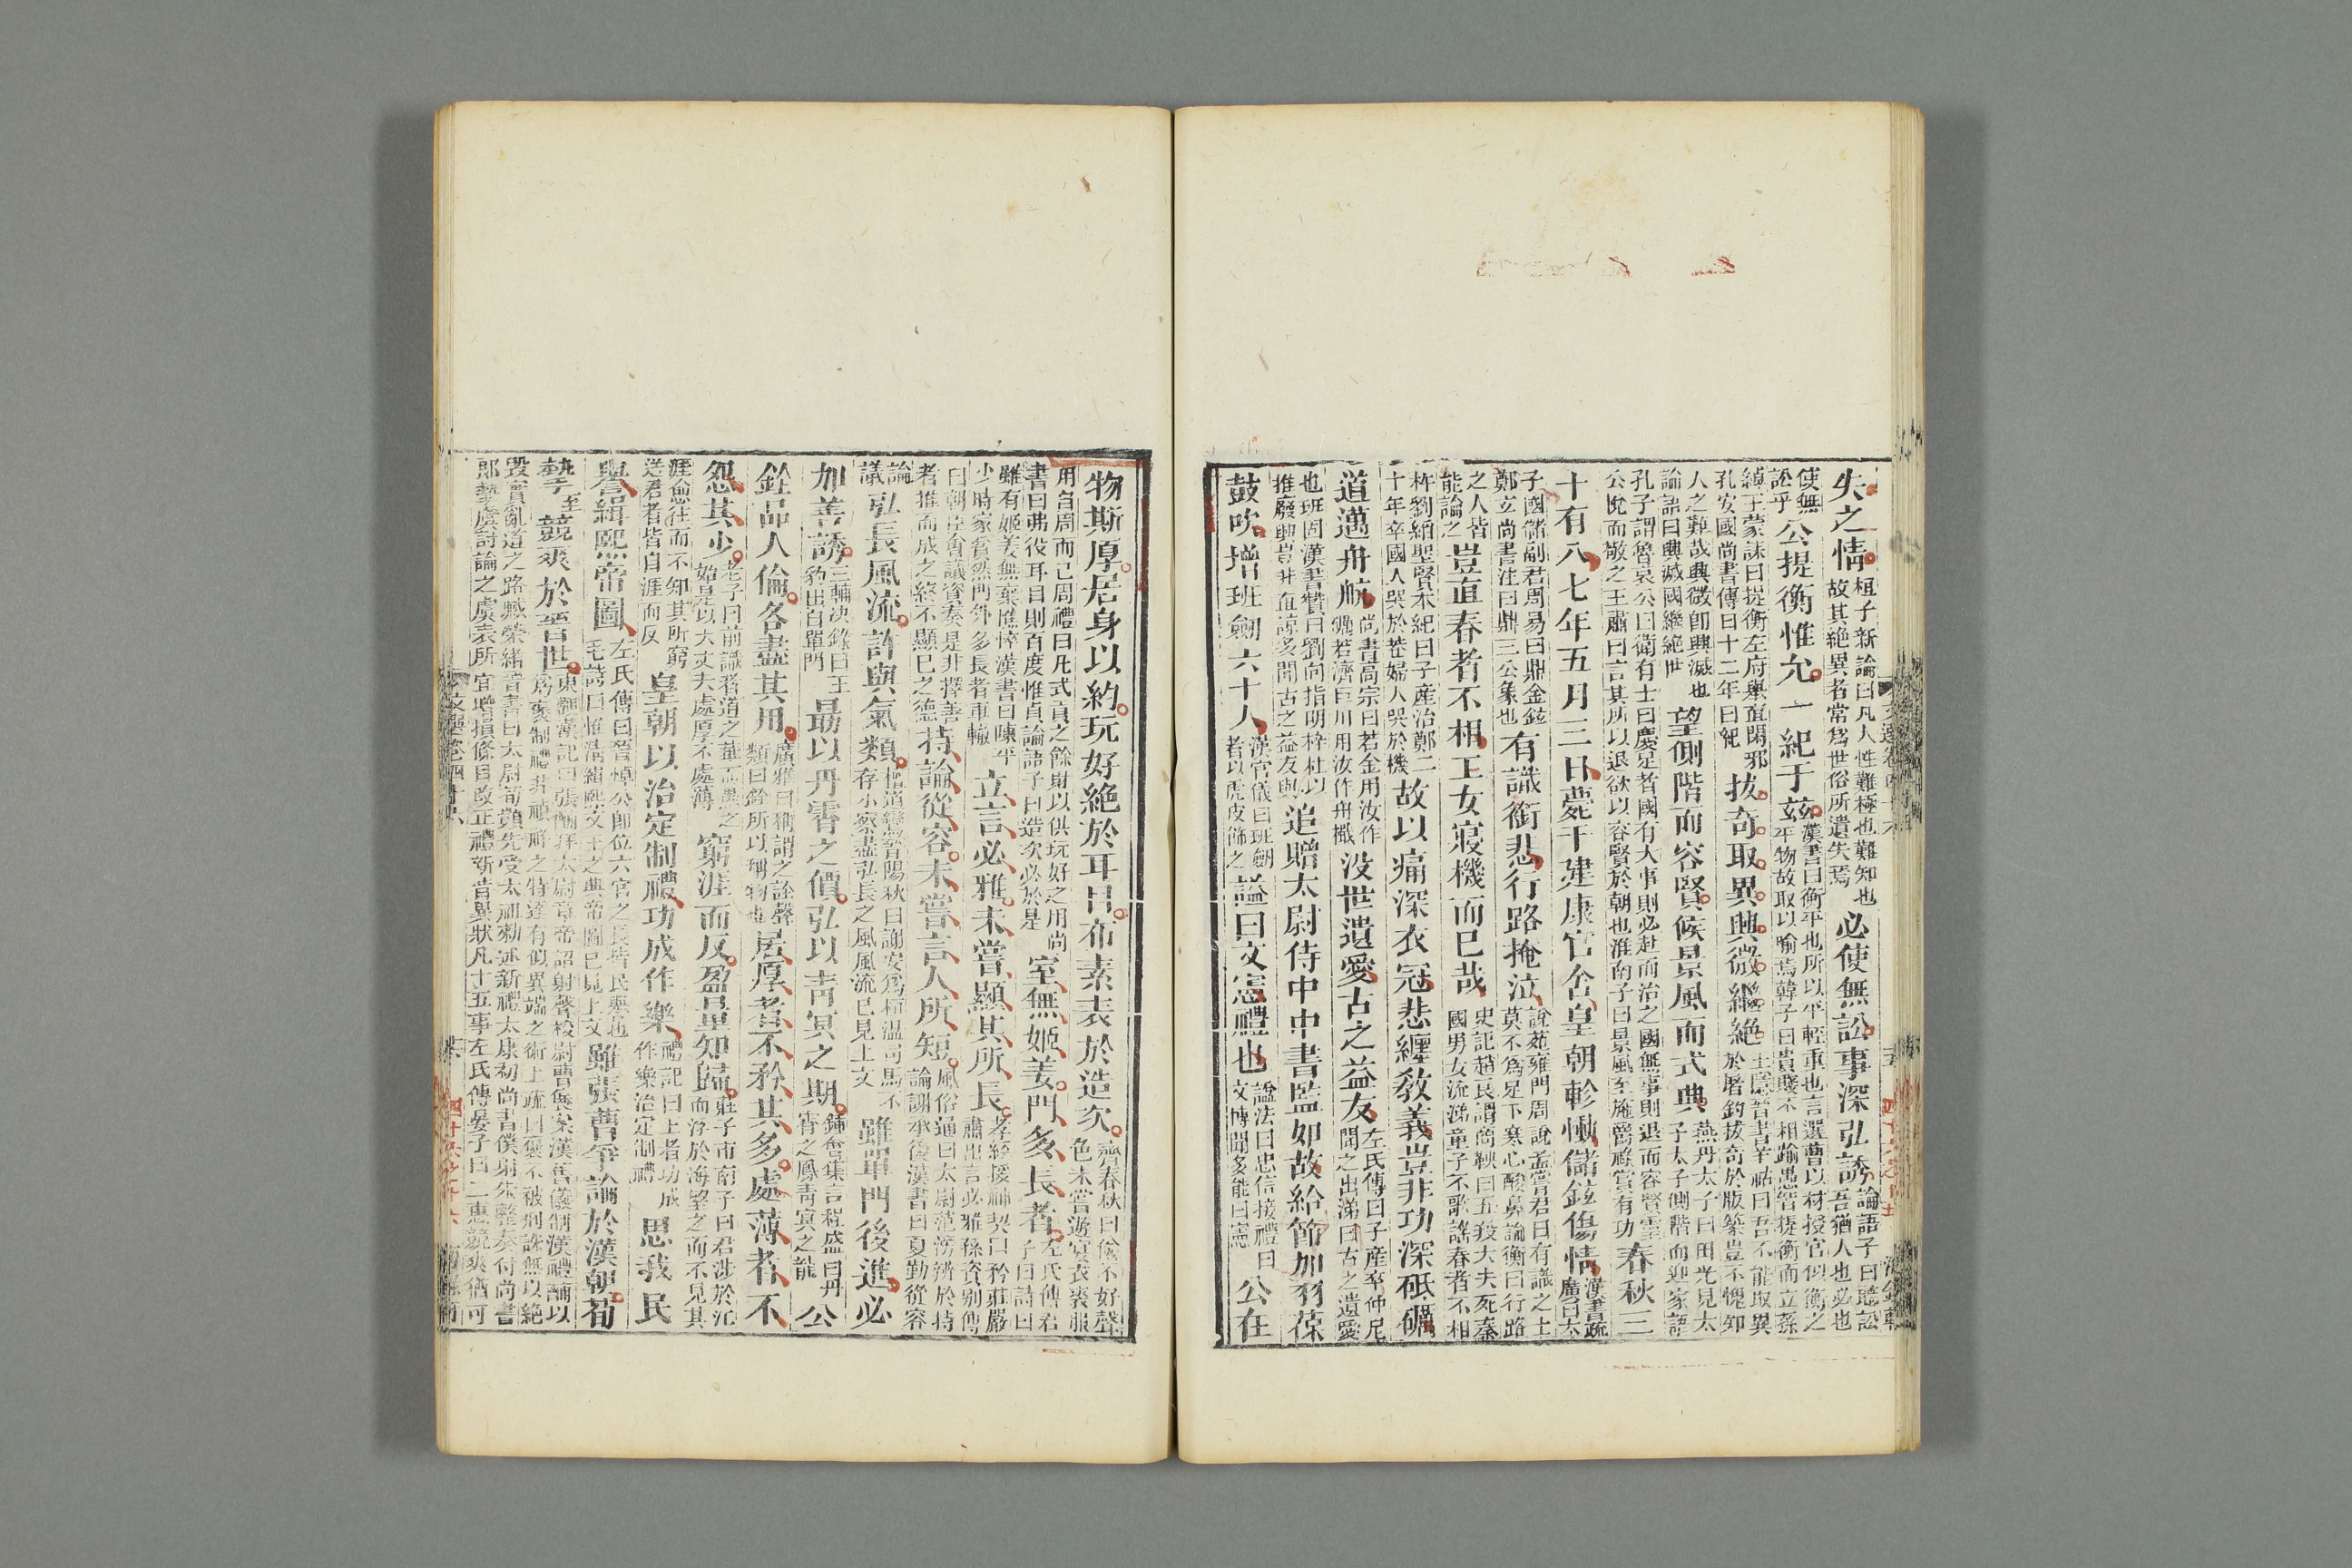 失之情桓子新論曰凡人性難極也難知也故其絕異者常爲世俗所遺失焉必使無訟事深弘誘論語子曰聽訟吾猶人也必也
使無訟乎公提衡惟允一紀于茲漢書曰衡平也所以平輕重也言選曹以材授官似衡之平物故取以喻焉韓子曰貴賤不相踰愚智提衡而立孫
綽王蒙誄曰提衡左府舉直閑邪孔安國尚書傳曰十二年曰紀拔奇取異興微繼絕王隱晉書羊祜曰吾不能取異於屠釣拔奇於版築豈不愧知
人之難哉興微卽興滅也論語曰興滅國繼絕世望側階而容賢候景風而式典燕丹太子曰田光見太子太子側階而迎家語
孔子謂魯哀公曰衛有士曰慶足者國有大事則必赴而治之國無事則退而容賢靈公悅而敬之王肅曰言其所以退欲以容賢於朝也淮南子曰景風至施爵祿賞有功春秋三
十有八七年五月三日薨于建康官舍皇朝軫慟儲鉉傷情漢書疏廣曰太
子國儲副君周易曰鼎金鉉鄭玄尚書注曰鼎三公象也有識銜悲行路掩泣說苑雍門周說孟嘗君曰有識之士莫不爲足下寒心酸鼻論衡曰行路
之人皆能論之豈直舂者不相工女寢機而已哉史記趙良謂商鞅曰五羖大夫死秦國男女流涕童子不歌謠舂者不相
杵劉縚聖賢本紀曰子產治鄭二十年卒國人哭於巷婦人哭於機故以痛深衣冠悲纏教義豈非功深砥礪
道邁舟航尚書高宗曰若金用汝作礪若濟巨川用汝作舟檝没世遺愛古之益友左氏傳曰子產卒仲尼聞之出涕曰古之遺愛
也班固漢書贊曰劉向指明梓柱以推廢興豈非直諒多聞古之益友與追贈太尉侍中中書監如故給節加羽葆
鼓吹增班劒六十人漢官儀曰班劒者以虎皮飾之謚曰文憲禮也謚法曰忠信接禮曰文博聞多能曰憲公在
物斯厚居身以約玩好絕於耳目布素表於造次齊春秋曰儉不好聲色未嘗遊宴衣裘服
用自周而已周禮曰凡式貢之餘財以供玩好之用尚書曰弗役耳目則百度惟貞論語子曰造次必於是室無姬姜門多長者左氏傳君子曰詩曰
雖有姬姜無棄憔悴漢書曰陳平少時家貧然門外多長者車轍立言必雅未嘗顯其所長孝經援神契曰矜莊嚴肅出言必雅孫資别傳
曰朝臣會議資奏是非擇善者推而成之終不顯已之德持論從容未嘗言人所短風俗通曰太尉范滂辨於持論謝承後漢書曰夏勤從容
論議弘長風流許與氣類檀道鸞晉陽秋曰謝安爲桓温司馬不存小察盡弘長之風風流已見上文雖單門後進必
加善誘三輔決錄曰王豹出自單門最以丹霄之價弘以青冥之期鍾會集言程盛曰丹霄之鳳青冥之龍公
銓品人倫各盡其用廣雅曰稱謂之詮聲類曰銓所以稱物也居厚者不矜其多處薄者不
怨其少老子曰前識者道之華而愚之始是以大丈夫處厚不處薄窮涯而反盈量知歸莊子市南子曰君涉於江而浮於海望之而不見其
涯愈往而不知其所窮送君者皆自涯而反皇朝以治定制禮功成作樂禮記曰王者功成作樂治定制禮思我民
譽緝熙帝圖左氏傳曰晉悼公卽位六官之長皆民譽也毛詩曰惟清緝熙文王之典帝圖已見上文雖張曹爭論於漢朝荀
摯至競爽於晉世東觀漢記曰張酺拜太尉章帝詔射聲校尉曹褒案漢舊儀制漢禮酺以爲褒制禮非禎祥之特達有似異端之術上疏曰褒不被刑誅無以絕
毀實亂道之路臧榮緒晉書曰太尉荀顗先受太祖勑述新禮太康初尚書僕射朱整奏付尚書郎摯虞討論之虞表所宜增損條目改正禮新昔異狀凡十五事左氏傳晏子曰二惠競爽猶可